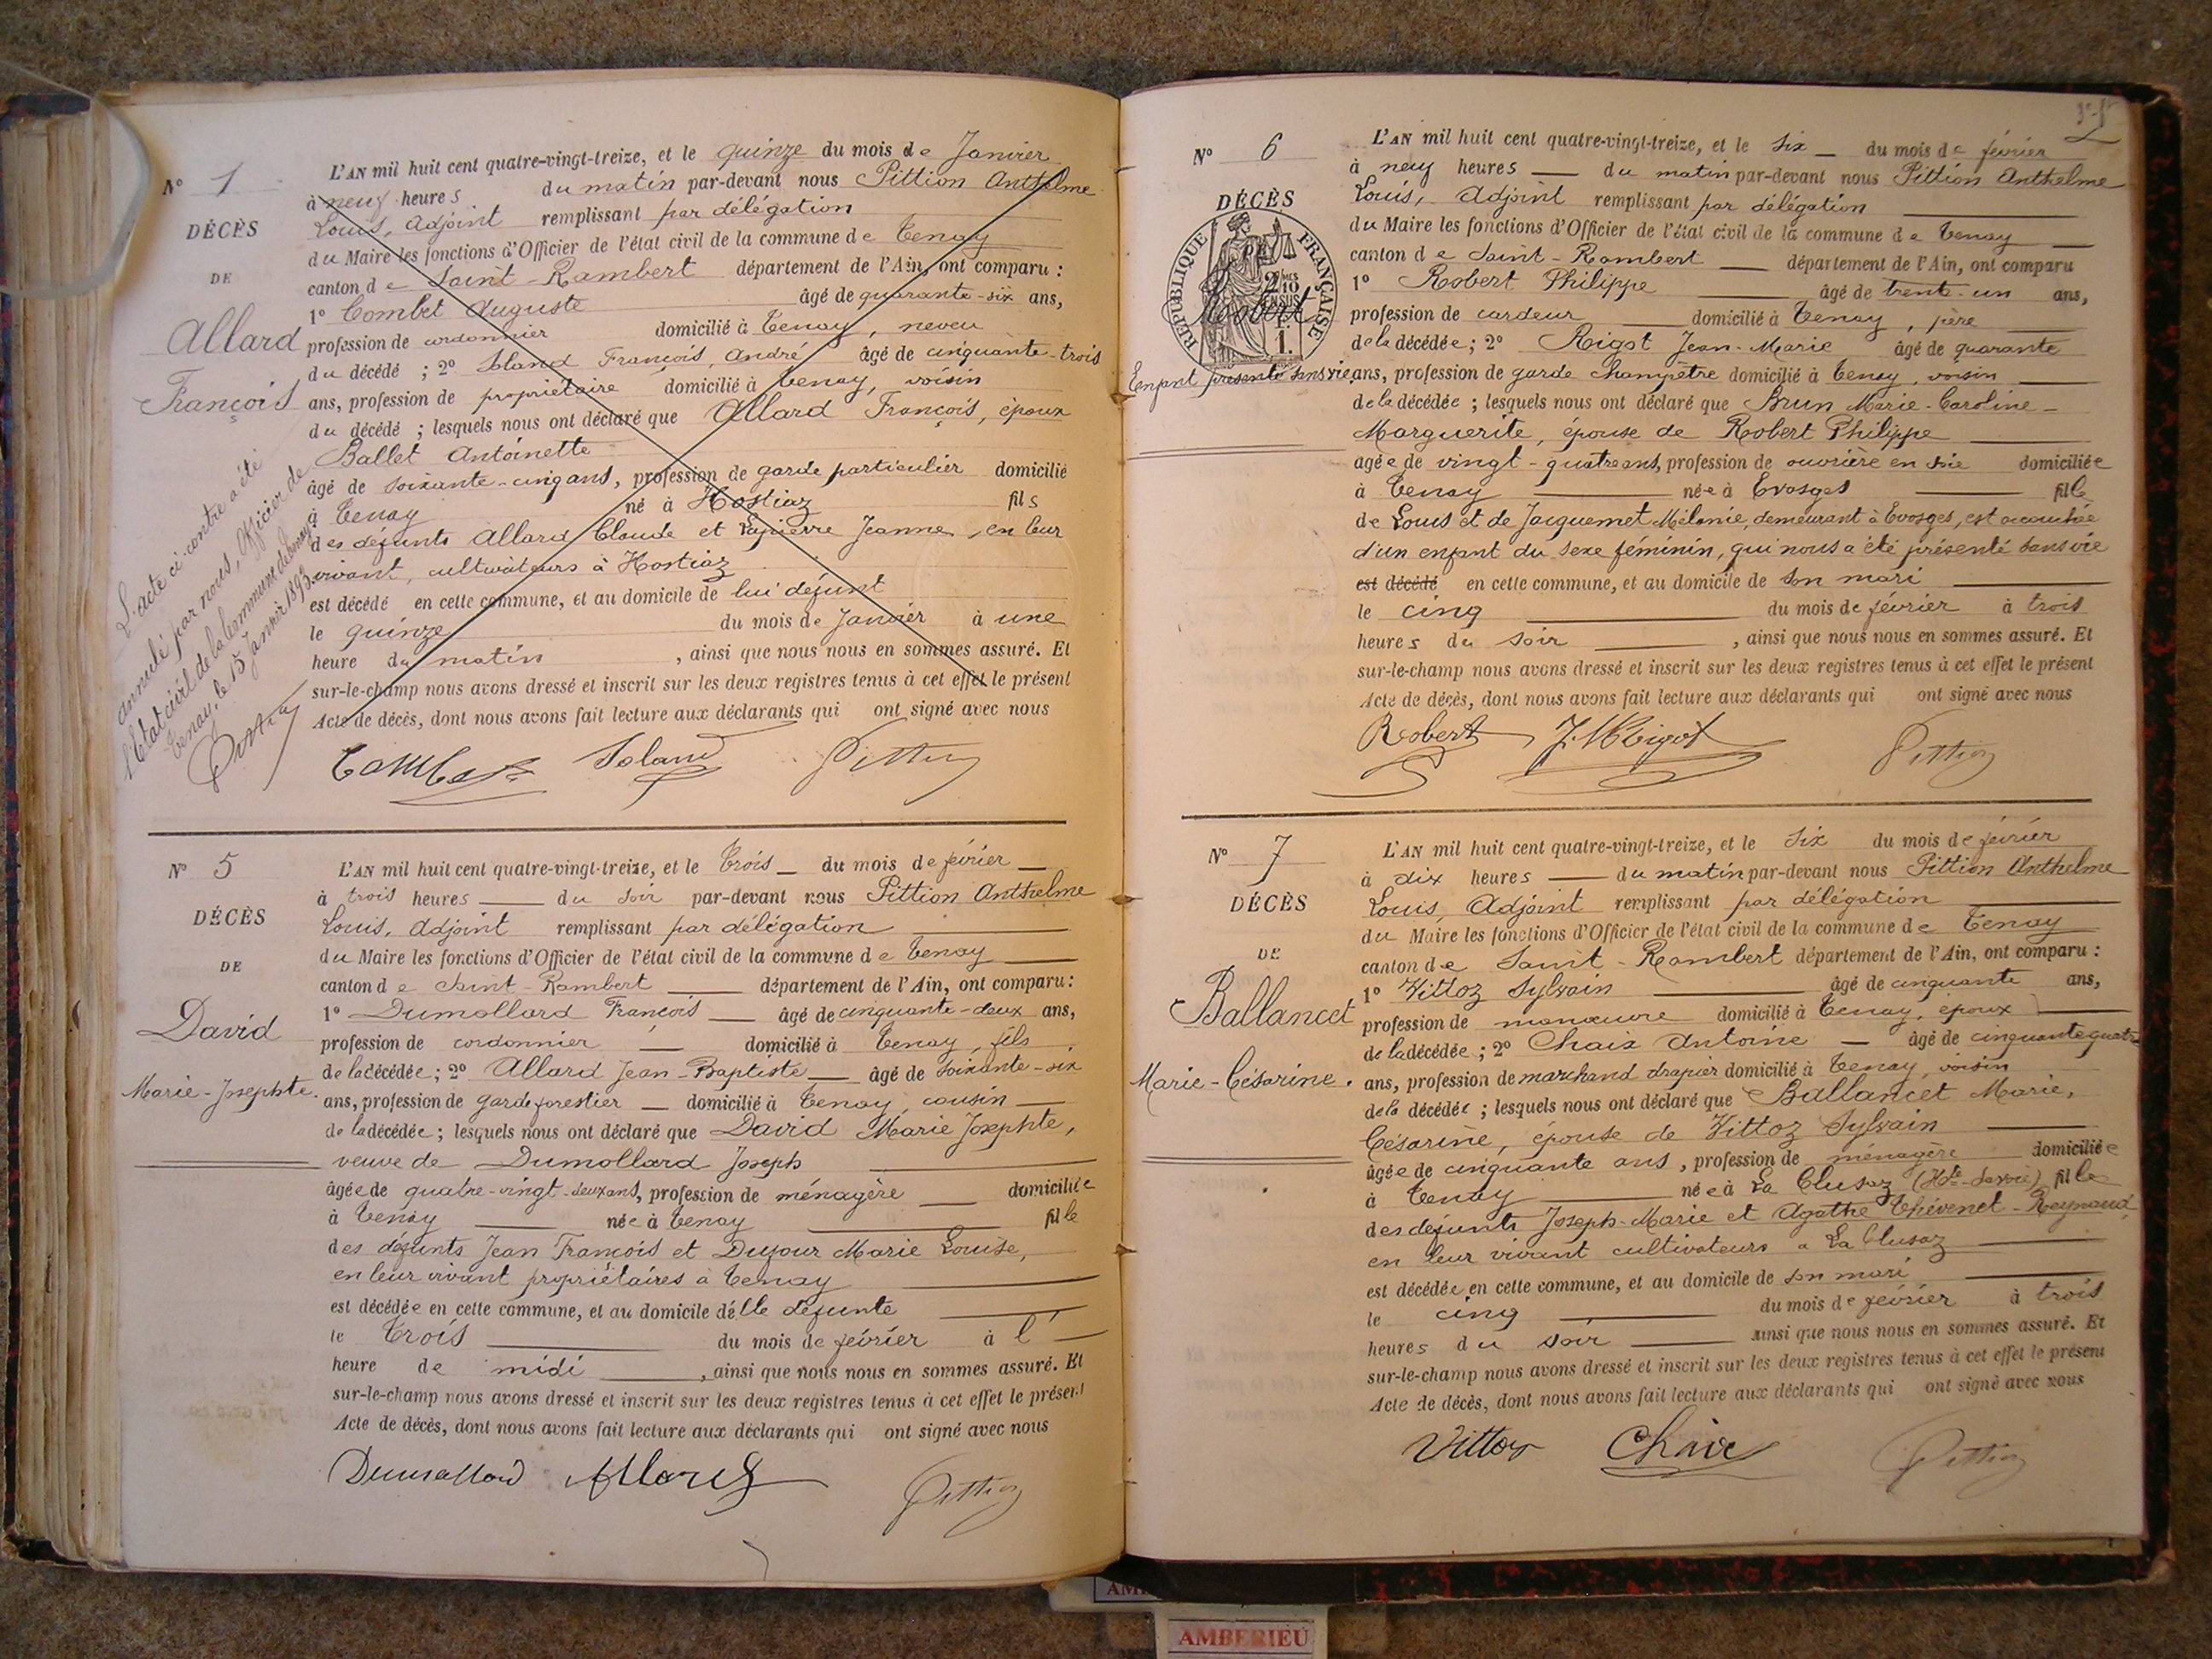 Nº 1
DÉCÈS
DE
Allard
François
L'acte ci-contre a été
annulé par nous, Officier de
l'Etat civil de la Commune de Tenay
Tenay, le 15 Janvier 1893.
Pittion
L'AN mil huit cent quatre-vingt-treize, et le quinze du mois de Janvier
à neuf heures du matin par-devant nous Pittion Anthelme
Louis, Adjoint remplissant par délégation
du Maire les fonctions d'Officier de l'état civil de la commune de Tenay
canton de Saint-Rambert département de l'Ain, ont comparu :
1º Combet Auguste âgé de quarante-six ans,
profession de cordonnier domicilié à Tenay, neveu
du décédé ; 2º Soland François, André âgé de cinquante-trois
ans, profession de propriétaire domicilié à Tenay, voisin
du décédé ; lesquels nous ont déclaré que Allard François, époux
Ballet Antoinette
âgé de soixante-cinq ans, profession de garde particulier domicilié
à Tenay né à Hostiaz fils
des défunts Allard Claude et Lapierre Jeanne, en leur
vivant, cultivateurs à Hostiaz
est décédé en cette commune, et au domicile de lui défunt
le quinze du mois de Janvier à une
heure du matin , ainsi que nous nous en sommes assuré. Et
sur-le-champ nous avons dressé et inscrit sur les deux registres tenus à cet effet le présent
Acte de décès, dont nous avons fait lecture aux déclarants qui ont signé avec nous
Combet Soland Pittion
Nº 5
DÉCÈS
DE
David
Marie-Josephte.
L'AN mil huit cent quatre-vingt-treize, et le trois du mois de février
à trois heures du soir par-devant nous Pittion Anthelme
Louis, Adjoint remplissant par délégation
du Maire les fonctions d'Officier de l'état civil de la commune de Tenay
canton de Saint-Rambert département de l'Ain, ont comparu :
1º Dumollard François âgé de cinquante-deux ans,
profession de cordonnier domicilié à Tenay, fils
de la décédée ; 2º Allard Jean-Baptiste âgé de soixante-six
ans, profession de garde forestier domicilié à Tenay, cousin
de la décédée ; lesquels nous ont déclaré que David Marie Josephte,
veuve de Dumollard Joseph
âgée de quatre-vingt-deux ans, profession de ménagère domiciliée
à Tenay née à Tenay fille
des défunts Jean François et Dufour Marie Louise,
en leur vivant propriétaires à Tenay
est décédée en cette commune, et au domicile d'elle défunte
le trois du mois de février à l'
heure de midi , ainsi que nous nous en sommes assuré. Et
sur-le-champ nous avons dressé et inscrit sur les deux registres tenus à cet effet le présent
Acte de décès, dont nous avons fait lecture aux déclarants qui ont signé avec nous
Dumollard Allard Pittion
Nº 6
DÉCÈS
DE
RÉPUBLIQUE FRANÇAISE
Robert
Enfant présenté sans vie.
L'AN mil huit cent quatre-vingt-treize, et le six du mois de février
à neuf heures du matin par-devant nous Pittion Anthelme
Louis, Adjoint remplissant par délégation
du Maire les fonctions d'Officier de l'état civil de la commune de Tenay
canton de Saint-Rambert département de l'Ain, ont comparu
1º Robert Philippe âgé de trente-un ans,
profession de cardeur domicilié à Tenay, père
de la décédée ; 2º Rigot Jean-Marie âgé de quarante
ans, profession de garde champêtre domicilié à Tenay, voisin
de la décédée ; lesquels nous ont déclaré que Brun Marie-Caroline-
Marguerite, épouse de Robert Philippe
âgée de vingt-quatre ans, profession de ouvrière en soie domiciliée
à Tenay née à Evosges fille
de Louis et de Jacquemet Mélanie, demeurant à Evosges, est accouchée
d'un enfant du sexe féminin, qui nous a été présenté sans vie
est décédé en cette commune, et au domicile de son mari
le cinq du mois de février à trois
heures du soir , ainsi que nous nous en sommes assuré. Et
sur-le-champ nous avons dressé et inscrit sur les deux registres tenus à cet effet le présent
Acte de décès, dont nous avons fait lecture aux déclarants qui ont signé avec nous
Robert J.M Rigot Pittion
Nº 7
DÉCÈS
DE
Ballancet
Marie-Césarine.
L'AN mil huit cent quatre-vingt-treize, et le six du mois de février
à dix heures du matin par-devant nous Pittion Anthelme
Louis, Adjoint remplissant par délégation
du Maire les fonctions d'Officier de l'état civil de la commune de Tenay
canton de Saint-Rambert département de l'Ain, ont comparu :
1º Vittoz Sylvain âgé de cinquante ans,
profession de manœuvre domicilié à Tenay, époux
de la décédée ; 2º Chaix Antoine âgé de cinquante quatre
ans, profession de marchand drapier domicilié à Tenay, voisin
de la décédée ; lesquels nous ont déclaré que Ballancet Marie,
Césarine, épouse de Vittoz Sylvain
âgée de cinquante ans, profession de ménagère domiciliée
à Tenay née à La Clusaz (Hte-Savoie) fille
des défunts Joseph-Marie et Agathe Thévenet-Reynaud,
en leur vivant cultivateurs à La Clusaz
est décédée en cette commune, et au domicile de son mari
le cinq du mois de février à trois
heures du soir ainsi que nous nous en sommes assuré. Et
sur-le-champ nous avons dressé et inscrit sur les deux registres tenus à cet effet le présent
Acte de décès, dont nous avons fait lecture aux déclarants qui ont signé avec nous
Vittoz Chaix Pittion
AMBERIEU